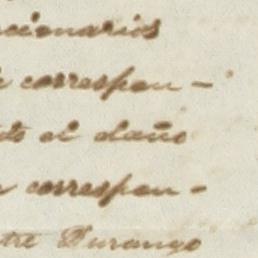 cionarios
correspon-
el daño
correspon-
tre Durango